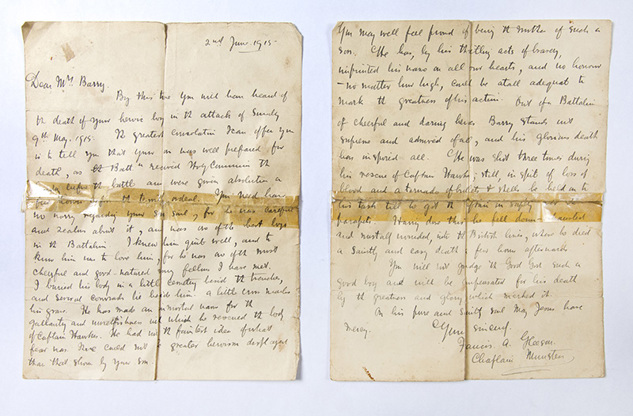 2nd June 1915
Dear Mrs Barry.
By this time you will have heard of
the death of your heroic boy in the attack of Sunday
9th May. 1915. The greatest consolation I can offer you
is to tell you that your son was well prepared for
death, as the Battn received Holy Communion the
before the battle and were given absolution a
You need have
no worry regarding your son's soul, for he was careful
and zealous about it, and was one of the best boys
in the Battalion. I knew him quite well, and to
know him was to love him, for he was one of the most
cheerful and good-natured young fellows I have met.
I buried his body in a little cemetery behind the trenches,
and several comrades lie beside him. A little cross marks
his grave. He has made an immortal name for the
gallantry and with which he rescued the body
of Captain Hawkes. He had not the faintest idea of what
fear was. None could greater heroism displayed
than that shown by your son.
You may well feel proud of being the mother of such a
son. He has, by his thrilling acts of bravery,
imprinted his name on all our hearts, and no honour
- no matter how high, could be at all adequate to
mark the greatness of his action. Out of a Battalion
of cheerful and daring heroes Barry stands out
supreme and admired of all, and his glorious death
has inspired all. He was shot three times during
his rescue of Captain Hawkes; still, in spite of loss of
blood and a tornado of bullets & shells he held on to
his task till he got the Captain in safety
parapets. Having done that he fell down - exhausted
and mortally wounded, into the British lines, where he died
a saintly and easy death a few hours afterwards.
You will not grudge the Good God such a
good boy and will be for his death
by the greatness and glory which marked it.
On his pure and saintly soul may Jesus have
mercy.
Yours sincerely
Francis A. Gleeson
Chaplain Munsters